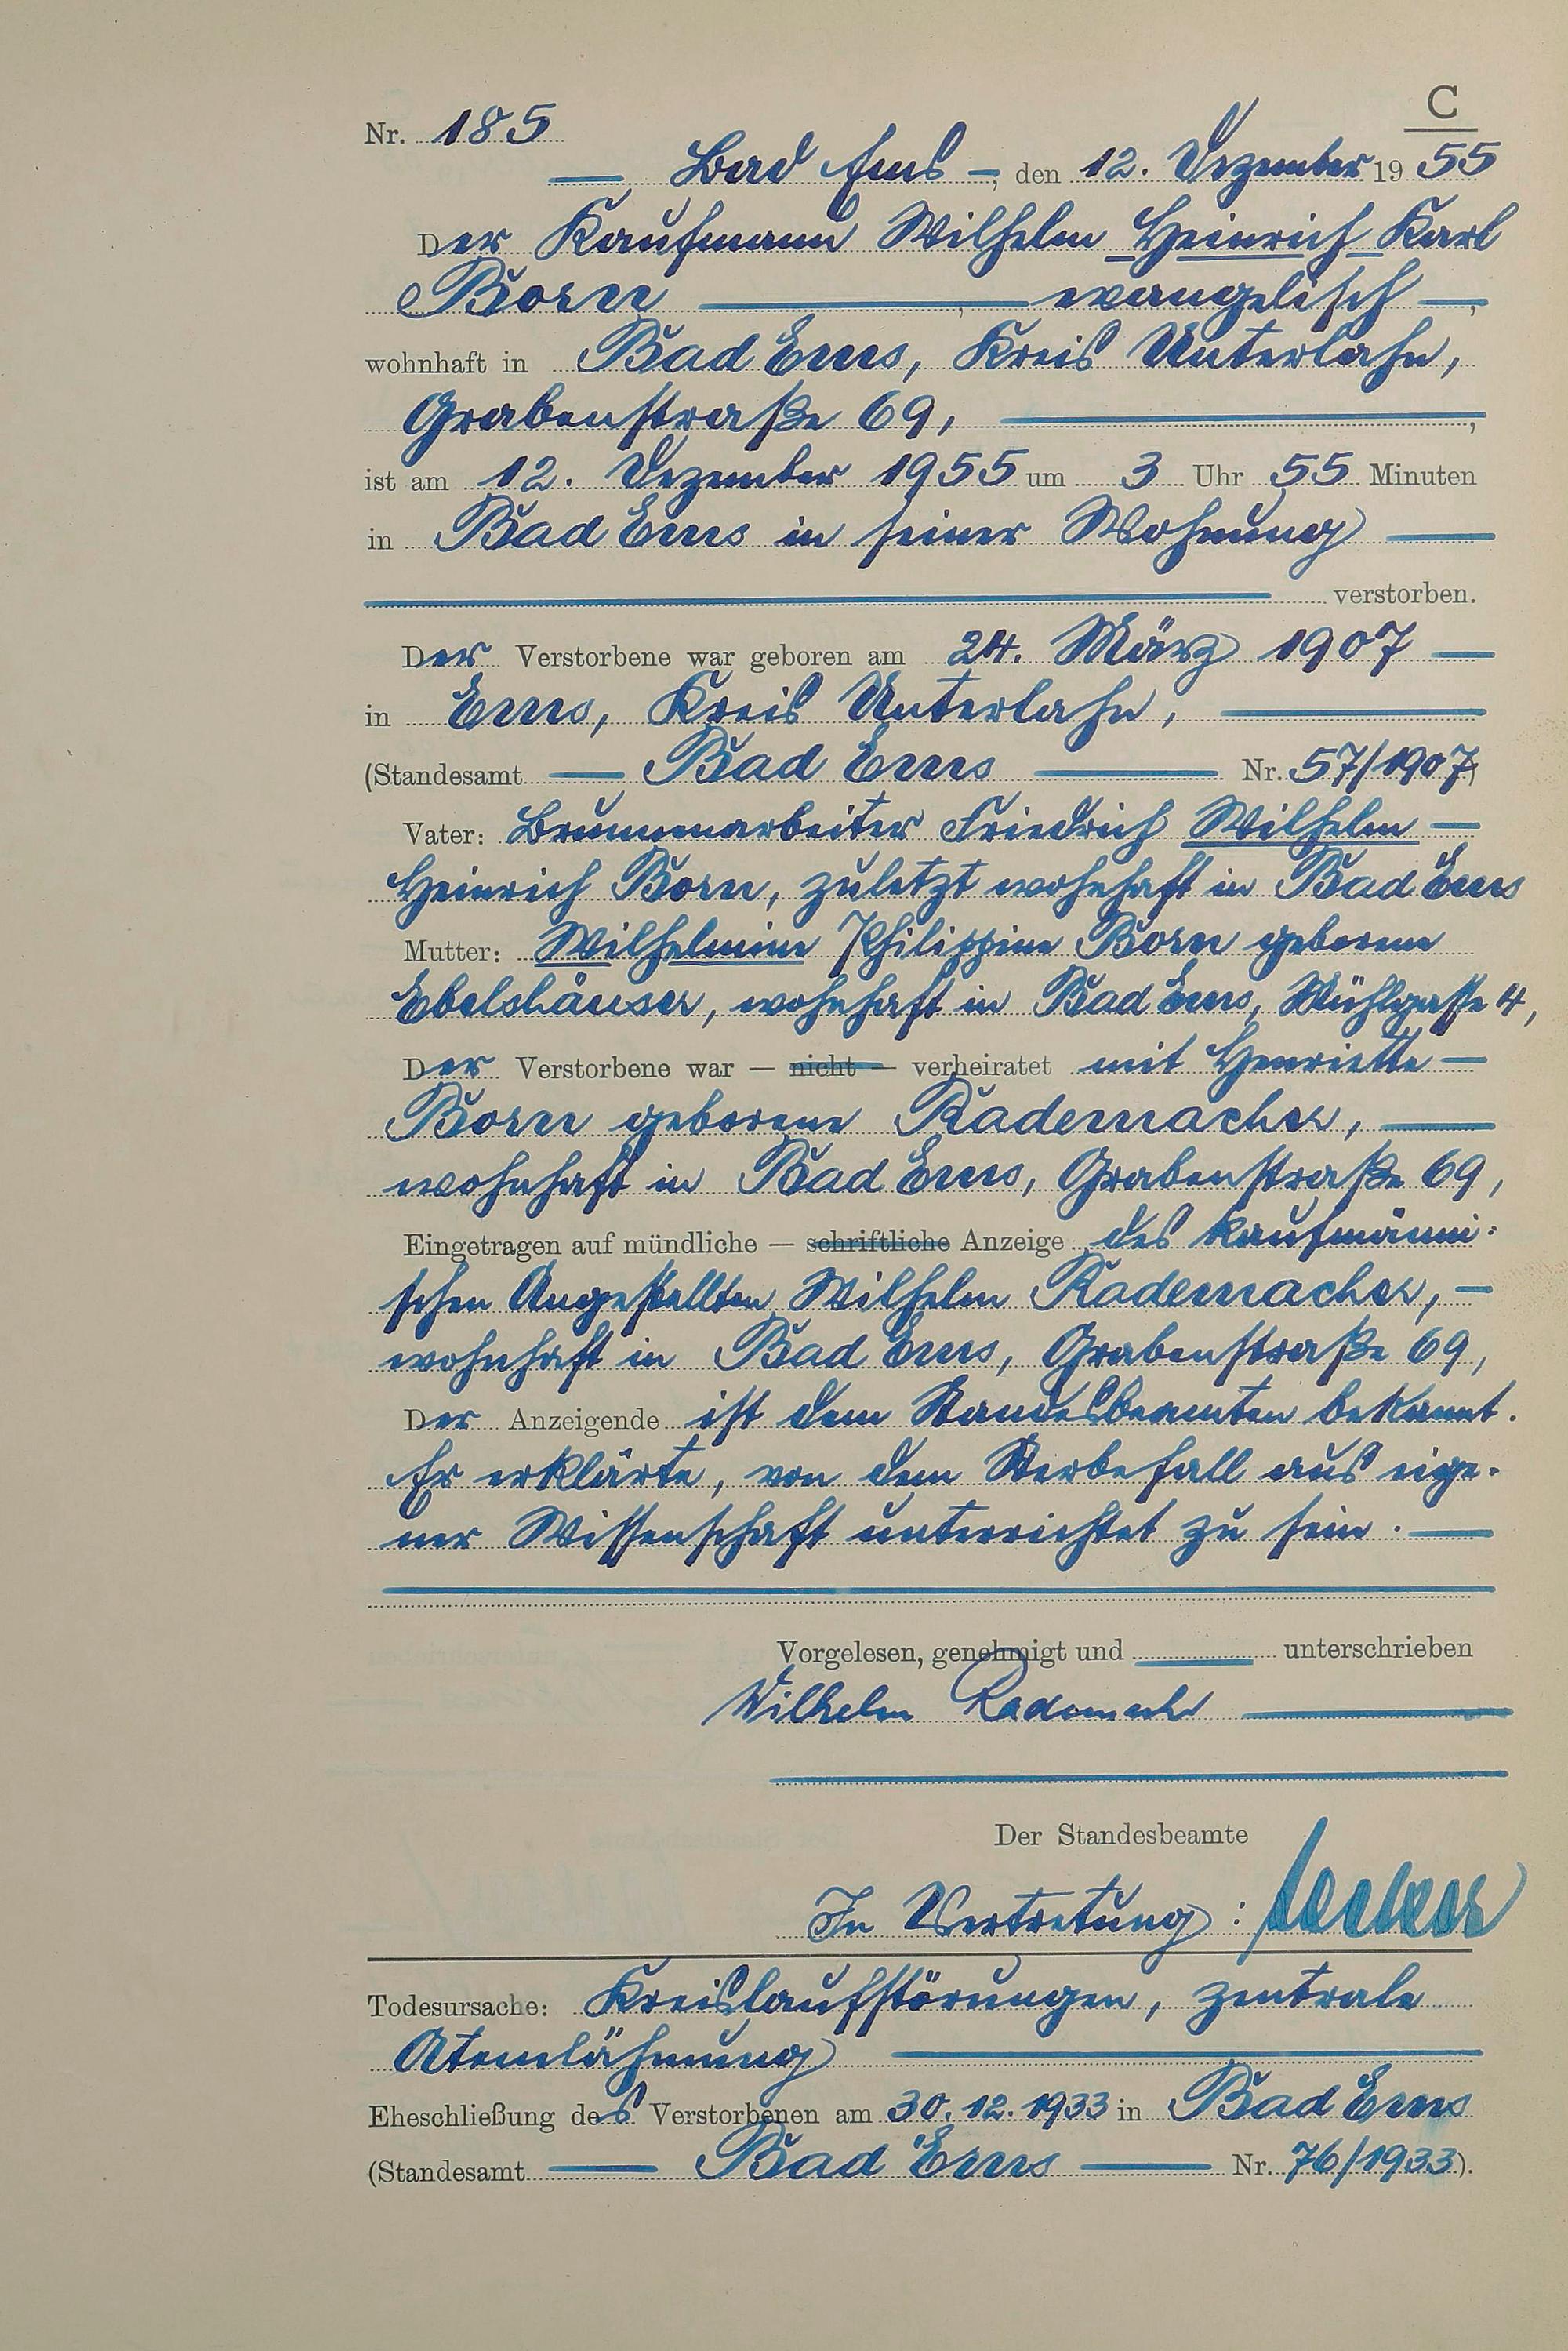 C
Nr. 185
— Bad Ems —, den 12. Dezember 1955
Der Kaufmann Wilhelm Heinrich Karl
Born —, evangelisch —,
wohnhaft in Bad Ems, Kreis Unterlahn,
Grabenstraße 69, —,
ist am 12. Dezember 1955 um 3 Uhr 55 Minuten
in Bad Ems in seiner Wohnung —
— verstorben.
Der Verstorbene war geboren am 24. März 1907 —
in Ems, Kreis Unterlahn, —
(Standesamt — Bad Ems — Nr. 57/1907)
Vater: Brunnenarbeiter Friedrich Wilhelm —
Heinrich Born, zuletzt wohnhaft in Bad Ems
Mutter: Wilhelmine Philippine Born geborene
Ebelshäuser, wohnhaft in Bad Ems, Mühlgasse 4,
Der Verstorbene war — nicht — verheiratet mit Henriette —
Born geborene Rademacher, —
wohnhaft in Bad Ems, Grabenstraße 69,
Eingetragen auf mündliche — schriftliche Anzeige des kaufmänni-
schen Angestellten Wilhelm Rademacher, —
wohnhaft in Bad Ems, Grabenstraße 69,
Der Anzeigende ist dem Standesbeamten bekannt.
Er erklärte, von dem Sterbefall aus eige-
ner Wissenschaft unterrichtet zu sein. —
Vorgelesen, genehmigt und — unterschrieben
Wilhelm Rademacher —
Der Standesbeamte
In Vertretung:
Todesursache: Kreislaufstörungen, zentrale
Atemlähmung —
Eheschließung des Verstorbenen am 30.12.1933 in Bad Ems
(Standesamt — Bad Ems — Nr. 76/1933).